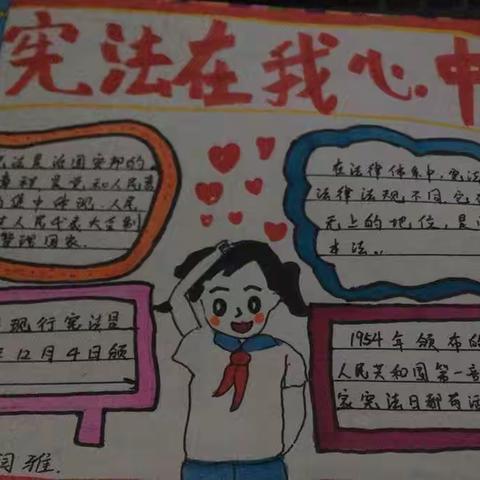 宪法在我心中
法是治国安邦的
章程，是党和人民意
集中体现，人民
人民代表大会制
管理国家.
在法律体系中，宪法
法律法规不同，它
无上的地位，是
本法..
现行宪法是
12月4日颁
1954年颁布的
人民共和国第一部
家宪法日都
雅.